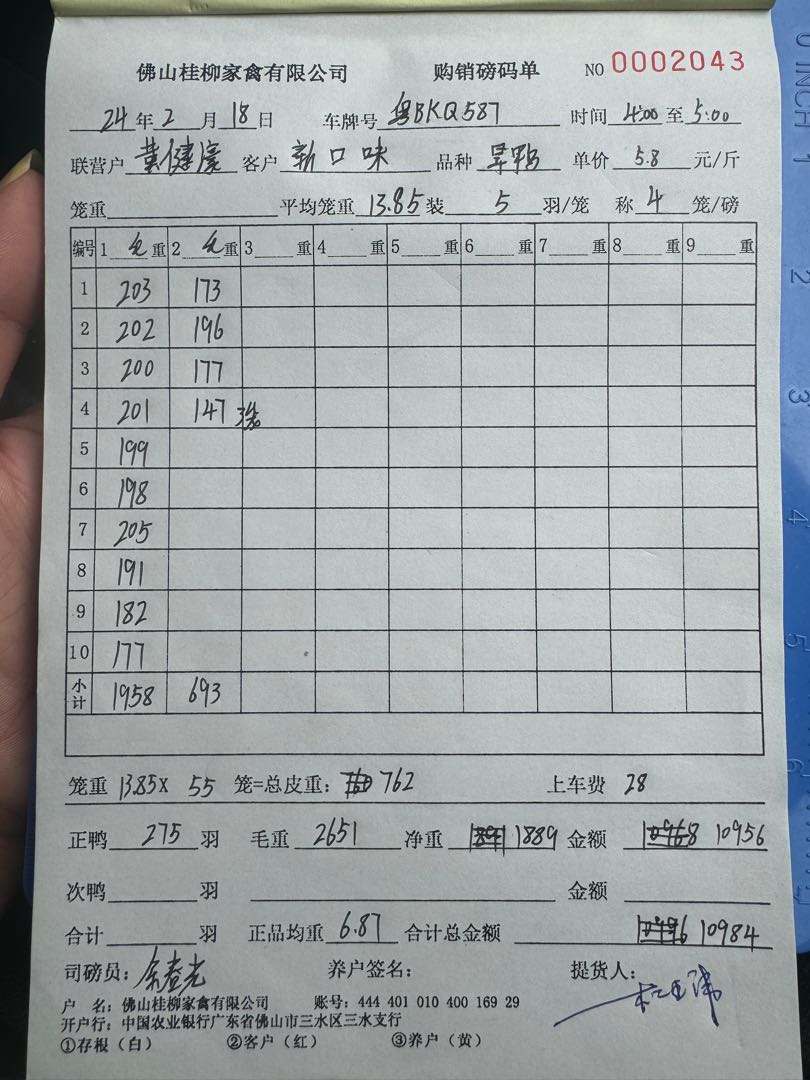 佛山桂柳家禽有限公司 购销磅码单 NO 0002043
24年2月18日 车牌号 粤BKQ587 时间 4:00至5:00
联营户 黄健濠 客户 新口味 品种 旱鸭 单价 5.8 元/斤
笼重 平均笼重 13.85 装 5 羽/笼 称 4 笼/磅
编号 1 毛重 2 毛重 3 重 4 重 5 重 6 重 7 重 8 重 9 重
1 203 173
2 202 196
3 200 177
4 201 147 3笼
5 199
6 198
7 205
8 191
9 182
10 177
小计 1958 693
笼重 13.85X 55 笼=总皮重: 762 上车费 28
正鸭 275 羽 毛重 2651 净重 1889 金额 10956
次鸭 羽 金额
合计 羽 正品均重 6.87 合计总金额 10984
司磅员: 养户签名: 提货人:
户 名: 佛山桂柳家禽有限公司 账号: 444 401 010 400 169 29
开户行: 中国农业银行广东省佛山市三水区三水支行
①存根（白） ②客户（红） ③养户（黄）
0 INCH 1
2
3
4
5
6